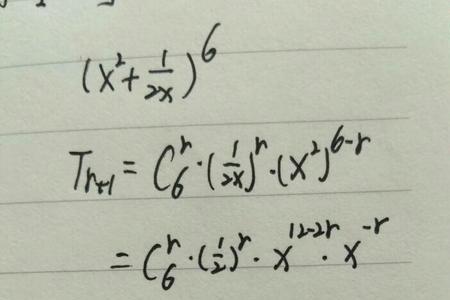 (x²+1/2x)⁶
Tᵣ₊₁ = C₆ʳ·(1/2x)ʳ·(x²)⁶⁻ʳ
= C₆ʳ·(1/2)ʳ·x¹²⁻²ʳ·x⁻ʳ